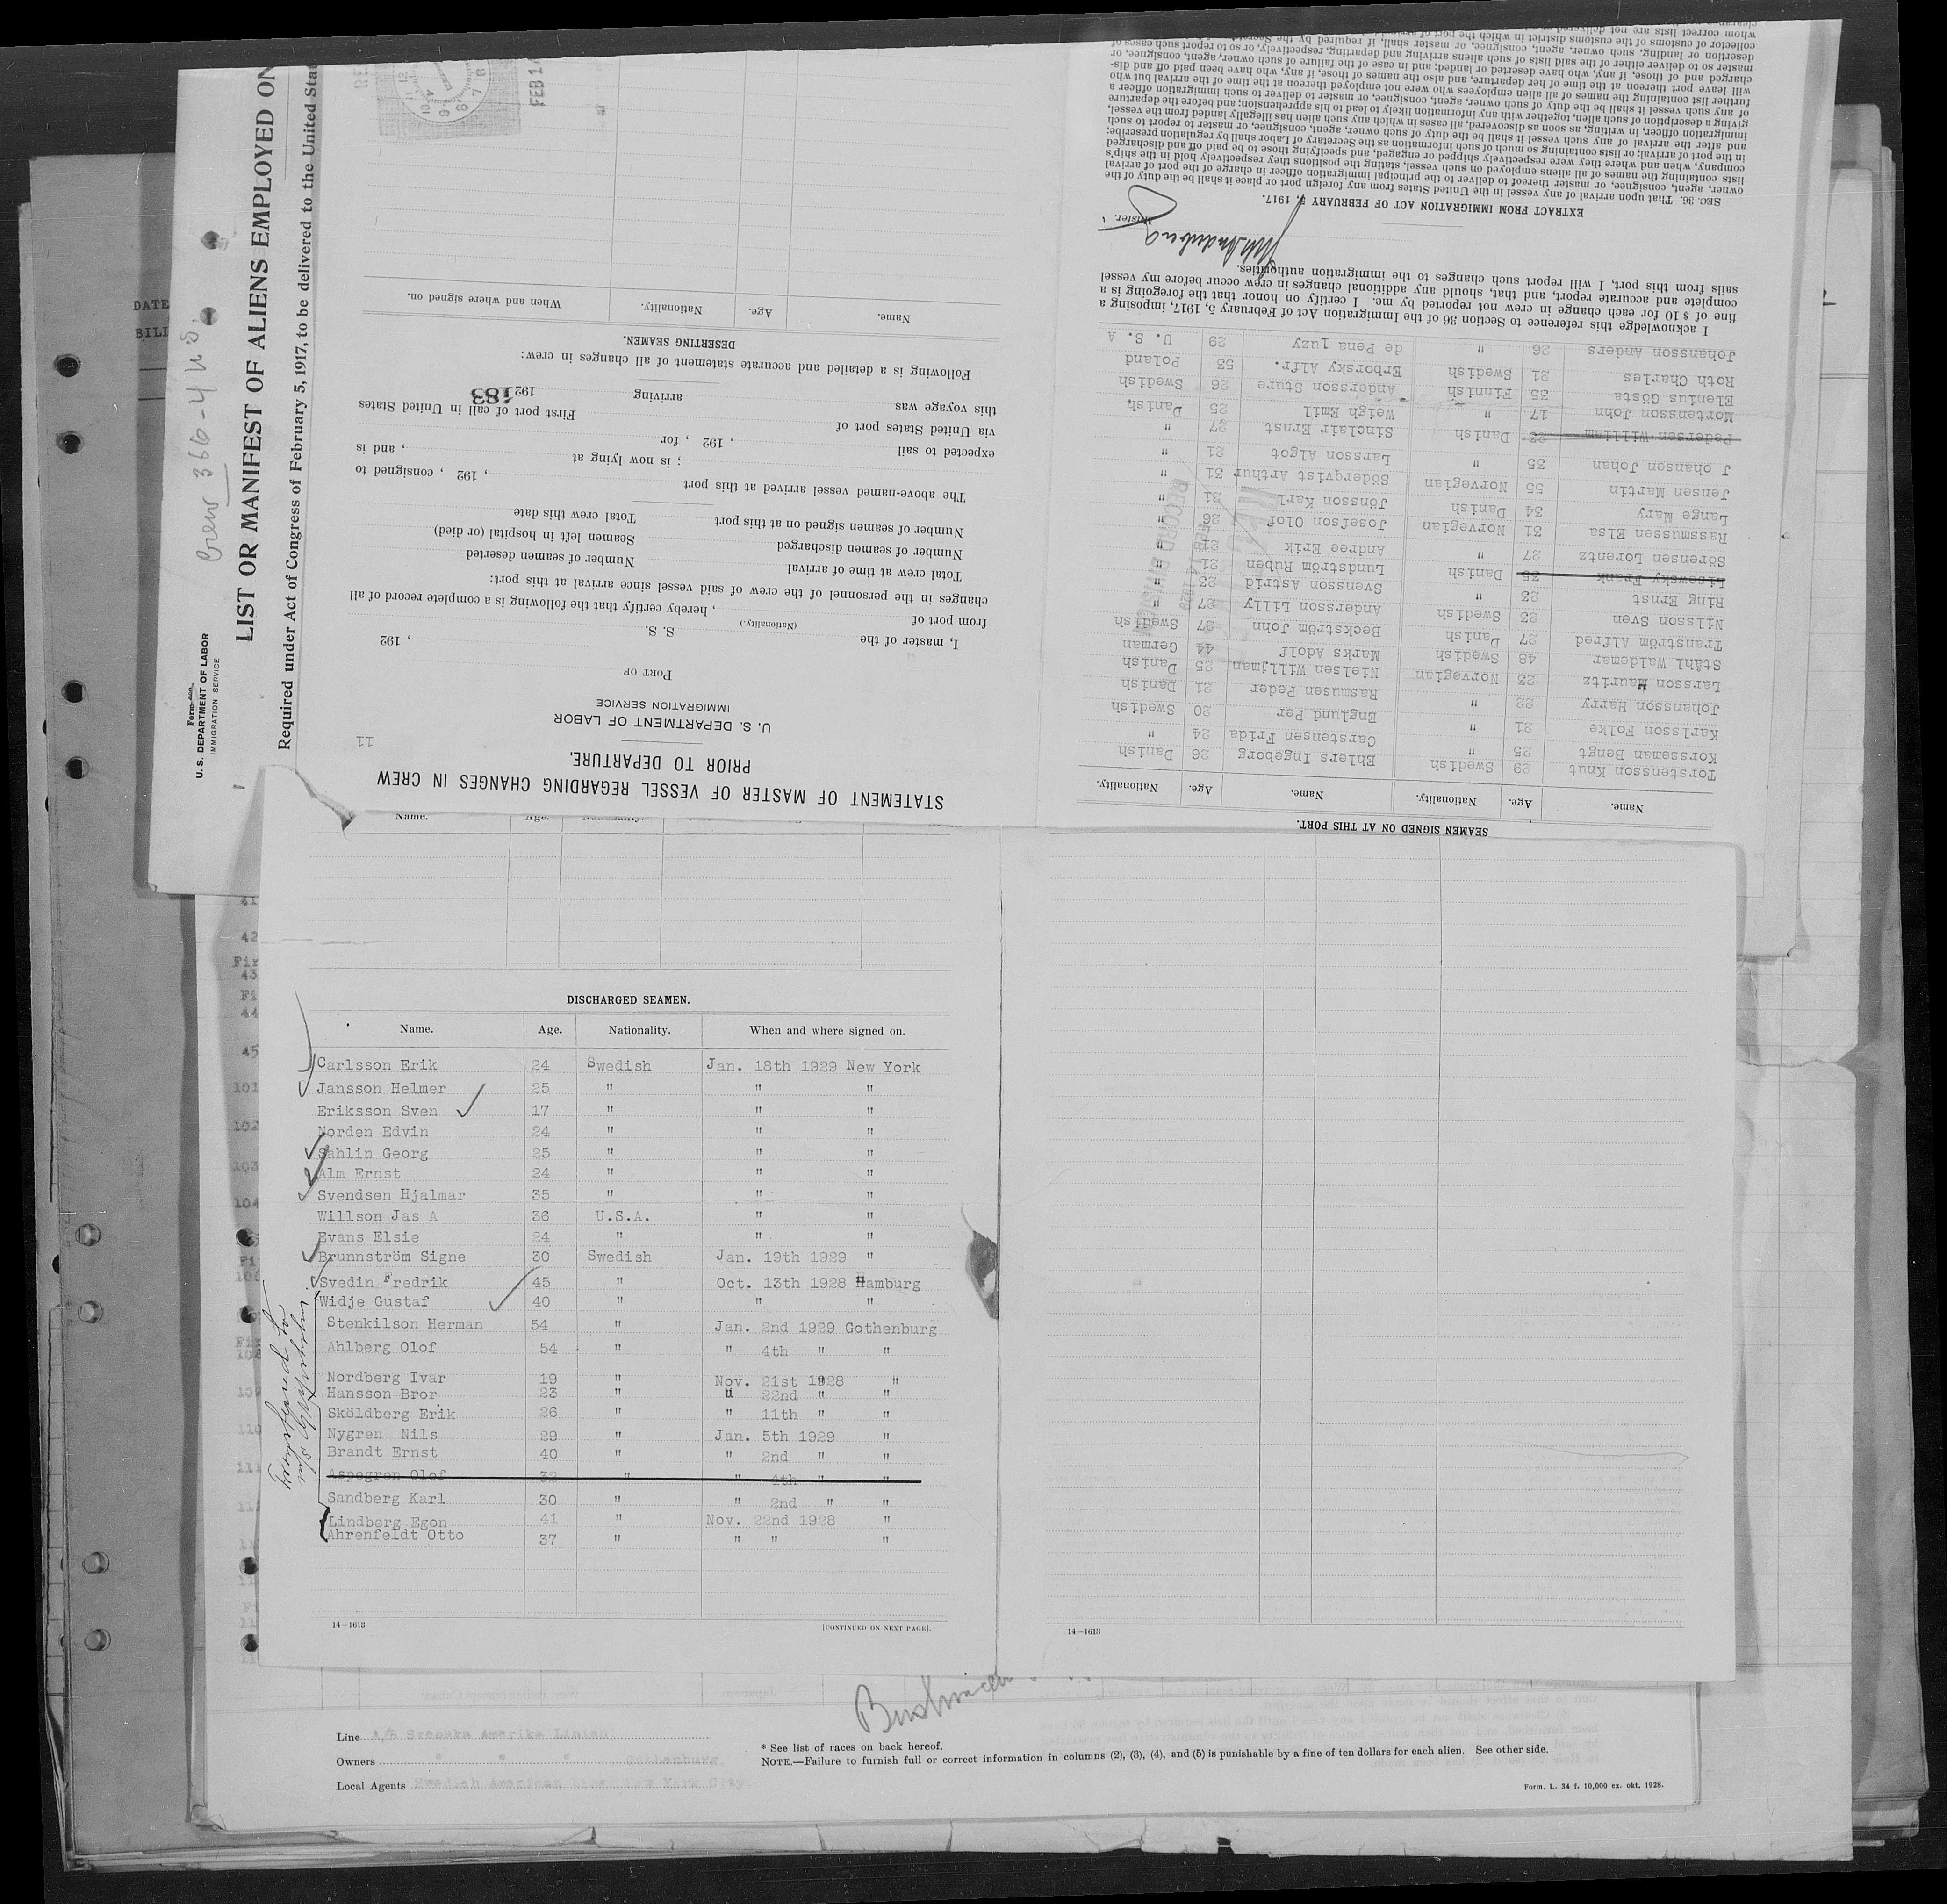 Crew 366-4 N.S.
Form 680
U. S. DEPARTMENT OF LABOR
IMMIGRATION SERVICE
LIST OR MANIFEST OF ALIENS EMPLOYED ON
Required under Act of Congress of February 5, 1917, to be delivered to the United Stat
DATE
BILI
STATEMENT OF MASTER OF VESSEL REGARDING CHANGES IN CREW
PRIOR TO DEPARTURE.
11
U. S. DEPARTMENT OF LABOR
IMMIGRATION SERVICE
PORT OF
, 192
I, master of the S. S.
from port of (Nationality.) , hereby certify that the following is a complete record of all
changes in the personnel of the crew of said vessel since arrival at this port:
Total crew at time of arrival Number of seamen deserted
Number of seamen discharged Seamen left in hospital (or died)
Number of seamen signed on at this port Total crew this date
The above-named vessel arrived at this port , 192 , consigned to
; is now lying at , and is
expected to sail , 192 , for
via United States port of First port of call in United States
this voyage was arriving 192
183
Following is a detailed and accurate statement of all changes in crew:
DESERTING SEAMEN.
Name. Age. Nationality. When and where signed on.
FEB 14
SEAMEN SIGNED ON AT THIS PORT.
Name. Age. Nationality. Name. Age. Nationality.
Torstensson Knut 29 Swedish Ehlers Ingeborg 26 Danish
Korsseman Bengt 25 " Carstensen Frida 24 "
Karlsson Folke 21 " Englund Per 20 Swedish
Johansson Harry 22 " Rasmusen Peder 21 Danish
Larsson Mauritz 23 Norwegian Nielsen Willjman 25 Danish
Ståhl Waldemar 48 Swedish Marks Adolf 44 German
Tranström Alfred 27 Danish Beckström John 27 Swedish
Nilsson Sven 23 Swedish Andersson Lilly 27 "
Ring Ernst 23 " Svensson Astrid 23 "
Lisowsky Frank 35 Danish Lundström Ruben 21 "
Sörensen Lorentz 27 " Andree Erik 21 "
Rasmussen Elsa 31 Norwegian Josefson Olof 26 "
Lange Mary 34 Danish Jönsson Karl 31 "
Jensen Martin 55 Norwegian Söderqvist Arthur 31 "
J ohansen Johan 35 " Larsson Algot 21 "
Pedersen William 23 Danish Sinclair Ernst 27 "
Mortensson John 17 " Weigh Emil 25 Danish
Elenius Gösta 35 Finnish Andersson Sture 26 Swedish
Roth Charles 21 Swedish Erborsky Alfr. 53 Poland
Johansson Anders 26 " de Pena luzy 29 U. S. A
RECORD DIVISION
I acknowledge this reference to Section 36 of the Immigration Act of February 5, 1917, imposing a
fine of $ 10 for each change in crew not reported by me. I certify on honor that the foregoing is a
complete and accurate report, and that, should any additional changes in crew occur before my vessel
sails from this port, I will report such changes to the immigration authorities.
Master.
EXTRACT FROM IMMIGRATION ACT OF FEBRUARY 5, 1917.
SEC. 36. That upon arrival of any vessel in the United States from any foreign port or place it shall be the duty of the
owner, agent, consignee, or master thereof to deliver to the principal immigration officer in charge of the port of arrival
lists containing the names of all aliens employed on such vessel, stating the positions they respectively hold in the ship's
company, when and where they were respectively shipped or engaged, and specifying those to be paid off and discharged
in the port of arrival; or lists containing so much of such information as the Secretary of Labor shall by regulation prescribe;
and after the arrival of any such vessel it shall be the duty of such owner, agent, consignee, or master to report to such
immigration officer, in writing, as soon as discovered, all cases in which any such alien has illegally landed from the vessel,
giving a description of such alien, together with any information likely to lead to his apprehension; and before the departure
of any such vessel it shall be the duty of such owner, agent, consignee, or master to deliver to such immigration officer a
further list containing the names of all alien employees who were not employed thereon at the time of the arrival but who
will leave port thereon at the time of her departure, and also the names of those, if any, who have been paid off and dis-
charged and of those, if any, who have deserted or landed; and in case of the failure of such owner, agent, consignee, or
master so to deliver either of the said lists of such aliens arriving and departing, respectively, or so to report such cases of
desertion or landing, such owner, agent, consignee, or master shall, if required by the
collector of customs of the customs district in which the port of
whom correct lists are not delivered
Name. Age.
DISCHARGED SEAMEN.
Name. Age. Nationality. When and where signed on.
Carlsson Erik 24 Swedish Jan. 18th 1929 New York
Jansson Helmer 25 " " "
Eriksson Sven 17 " " "
Norden Edvin 24 " " "
Sahlin Georg 25 " " "
Alm Ernst 24 " " "
Svendsen Hjalmar 35 " " "
Willson Jas A 36 U.S.A. " "
Evans Elsie 24 " " "
Brunnström Signe 30 Swedish Jan. 19th 1929 "
Svedin Fredrik 45 " Oct. 13th 1928 Hamburg
Widje Gustaf 40 " " "
Stenkilson Herman 54 " Jan. 2nd 1929 Gothenburg
Ahlberg Olof 54 " " 4th " "
Nordberg Ivar 19 " Nov. 21st 1928 "
Hansson Bror 23 " " 22nd " "
Sköldberg Erik 26 " " 11th " "
Nygren Nils 29 " Jan. 5th 1929 "
Brandt Ernst 40 " " 2nd " "
Aspegren Olof 32 " " 4th " "
Sandberg Karl 30 " " 2nd " "
Lindberg Egon 41 " Nov. 22nd 1928 "
Ahrenfeldt Otto 37 " " " "
Transferred to
14—1613 [CONTINUED ON NEXT PAGE].
14—1613
Line A/B Svenska Amerika Linien
Owners " " " Gothenburg
Local Agents Swedish American Line New York City
* See list of races on back hereof.
NOTE.—Failure to furnish full or correct information in columns (2), (3), (4), and (5) is punishable by a fine of ten dollars for each alien. See other side.
Form. L. 34 f. 10,000 ex. okt. 1928.